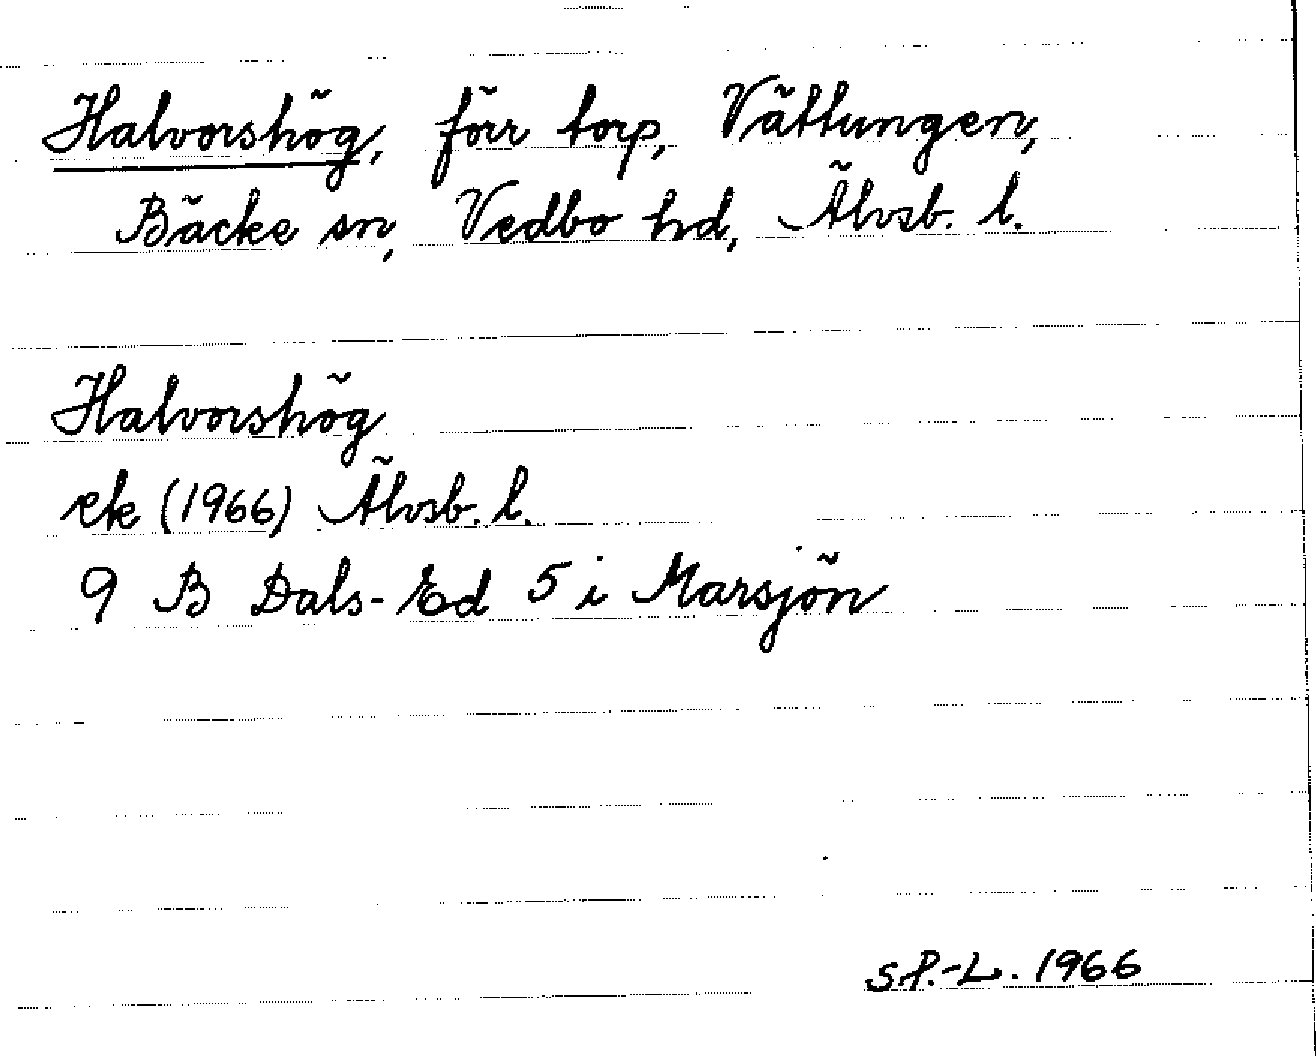 Halvorshög, förr torp, Vättungen,
Bäcke sn, Vedbo hd, Älvsb. l.
Halvorshög
ek (1966) Älvsb. l.
9 B Dals-Ed 5 i Marsjön
S.P.-L. 1966